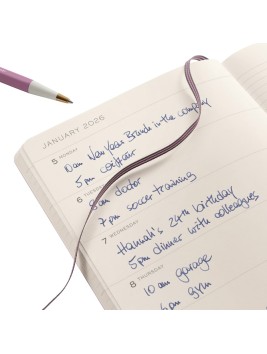 JANUARY 2026
5 MONDAY
10am New Years Brunch in the company
5 pm coiffeur
6
8am doctor
7 pm soccer training
7 WEDNESDAY
Hannah's 24th birthday
5pm dinner with colleagues
8 THURSDAY
10 am garage
6 pm gym